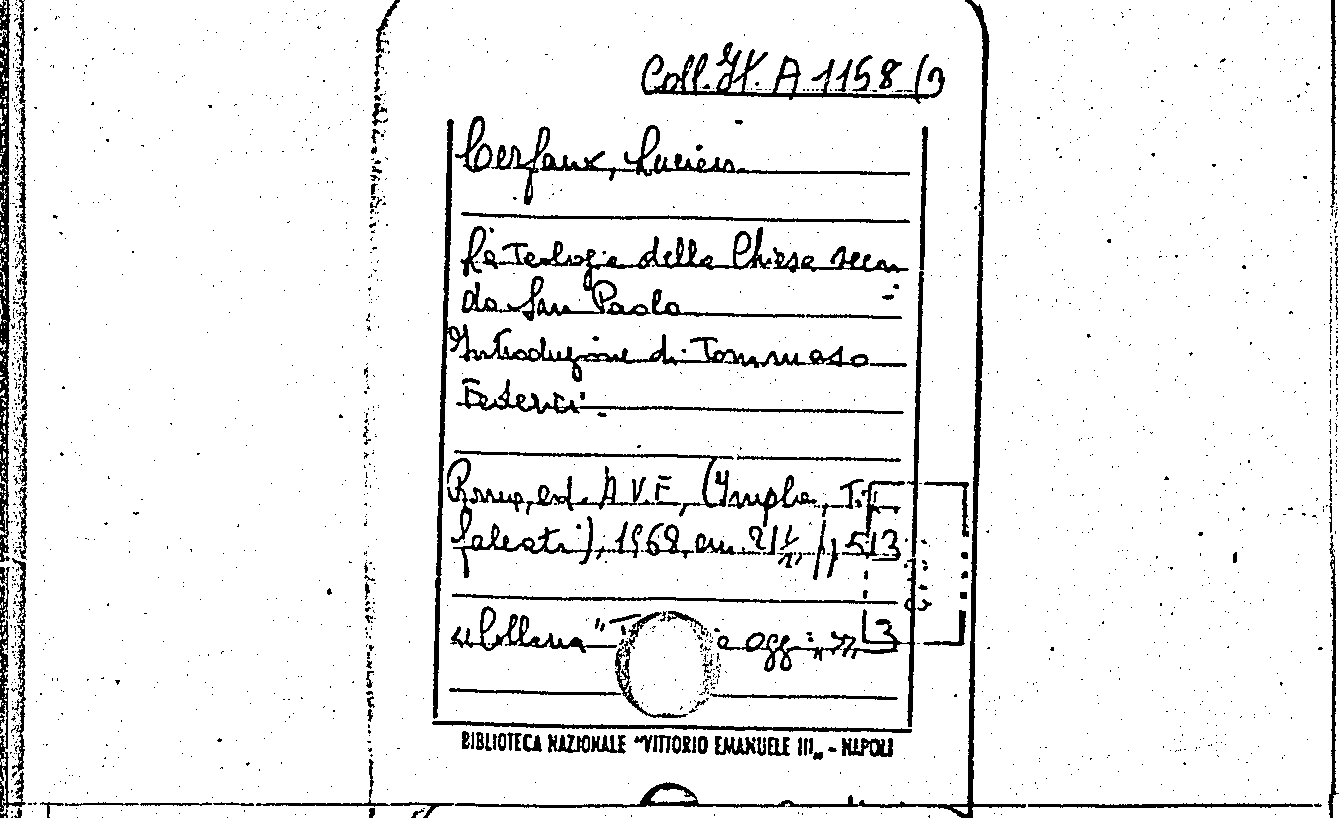 Coll. It. A 1158 (3
Cerfaux, Lucien
La Teologia della Chiesa secon
do San Paolo
Introduzione di Tommaso
Federici.
Roma, ed. A.V.E,
Galeati), 1968, cm. 21 p. 513
"Collana " e oggi" 3
BIBLIOTECA NAZIONALE "VITTORIO EMANUELE III„ - NAPOLI